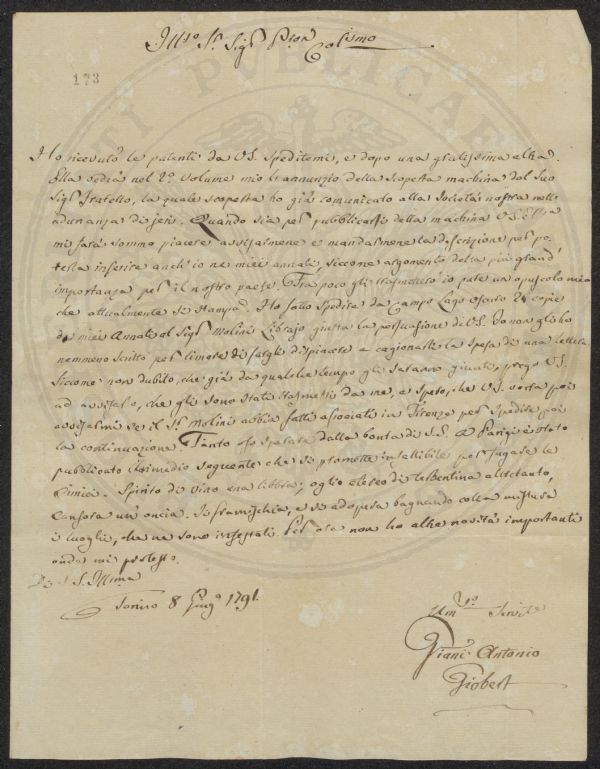 Illmo Sr. Sigr Pron Colismo
173
Ho ricevuto le patenti da V.S. speditemi, e dopo una gratissima altra.
Ella vedrà nel 2º. volume mio l'annunzio della scoperta machina dal Suo
Sigr fratello, la quale scoperta ho già comunicato alla Società nostra nell'
adunanza di jeri. Quando sia per pubblicarsi della machina V.S. Ella
mi farà sommo piacere avvisarmene e mandarmene la descrizione per po-
terla inserire anch'io ne miei annali, siccome argomento della più grand'
importanza pel il nostro paese. Tra poco gli trasmetterò io pure un opuscolo mio
che attualmente si stampa. Ho fatto spedire da Campo Lago oscuro 24 copie
de miei Annali al Sigr Molini Librajo giusta la persuasione di V.S. Io non gli ho
nemmeno scritto per timore di fargli dispiacere e cagionarle la spesa di una lettera
Siccome non dubito, che già da qualche tempo gli saranno giunti, prego V.S.
ad avvisarlo, che gli sono stati trasmessi da me, e spero, che V.S. vorrà poi
avvisarmi se il Sr. Molini abbia fatti associati in Firenze per spedire poi
la continuazione. Tanto oso sperare dalla bontà di V.S. A Parigi è stato
pubblicato il rimedio seguente che si promette infallibile per fugare le
Cimici. Spirito di vino una libbra; oglio etereo di terbentina altrettanto,
Canfora un'oncia. Si framischia, e si adopera bagnando colla mistura
i luoghi, che ne sono infestati. Per ora non ho altra novità importanti
onde mi protesto.
Di V.S. Illma
Torino 8 Giugo 1791.
Umo Servite
Gianè Antonio
Giobert